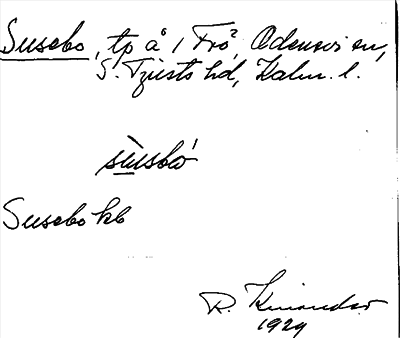 Susebo, tp å 1 Frö², Odensvi sn,
S. Tjusts hd, Kalm. l.
Susebo kb
R. Kinander
1929